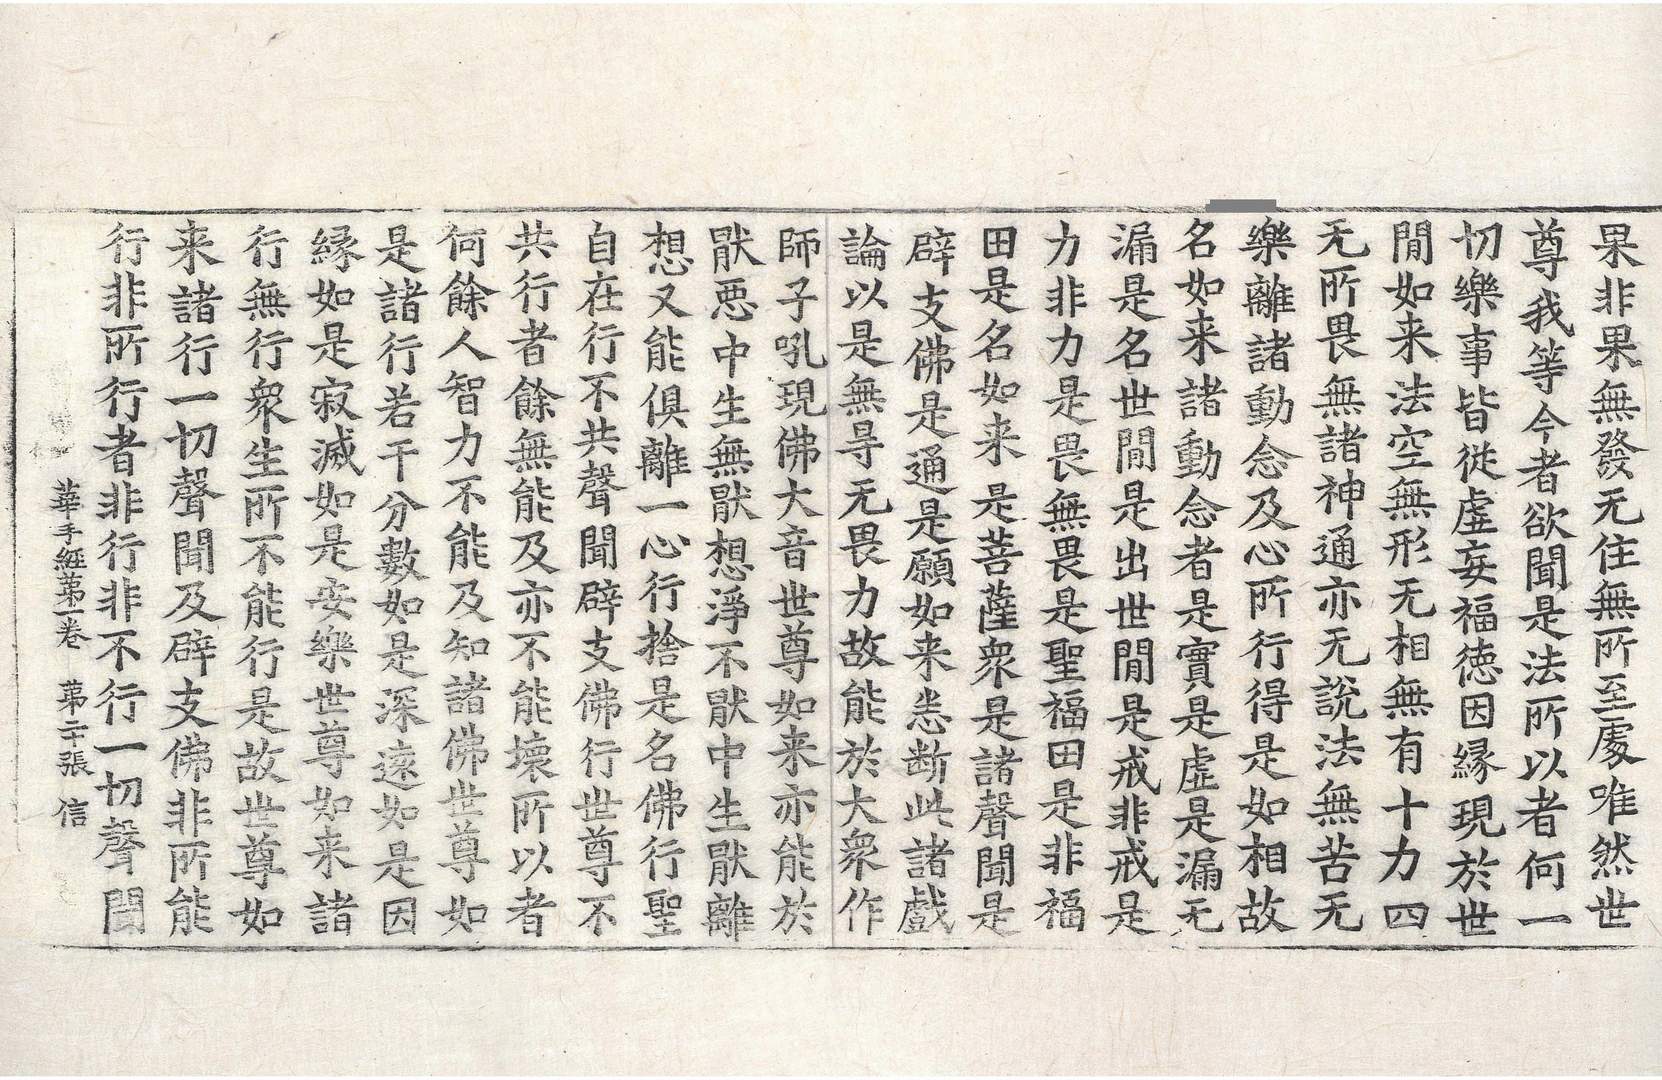 果非果無發无住無所至處唯然世
尊我等今者欲聞是法所以者何一
切樂事皆從虛妄福德因緣現於世
閒如来法空無形无相無有十力四
无所畏無諸神通亦无說法無苦无
樂離諸動念及心所行得是如相故
名如来諸動念者是實是虛是漏无
漏是名世閒是出世閒是戒非戒是
力非力是畏無畏是聖福田是非福
田是名如来是菩薩衆是諸聲聞是
辟支佛是通是願如来悉断此諸戲
論以是無㝵无畏力故能於大衆作
師子吼現佛大音世尊如来亦能於
猒惡中生無猒想淨不猒中生猒離
想又能俱離一心行捨是名佛行聖
自在行不共聲聞辟支佛行世尊不
共行者餘無能及亦不能壞所以者
何餘人智力不能及知諸佛世尊如
是諸行若干分數如是深遠如是因
緣如是寂滅如是安樂世尊如来諸
行無行衆生所不能行是故世尊如
来諸行一切聲聞及辟支佛非所能
行非所行者非行非不行一切聲聞
華手經第一卷 第二十張 信